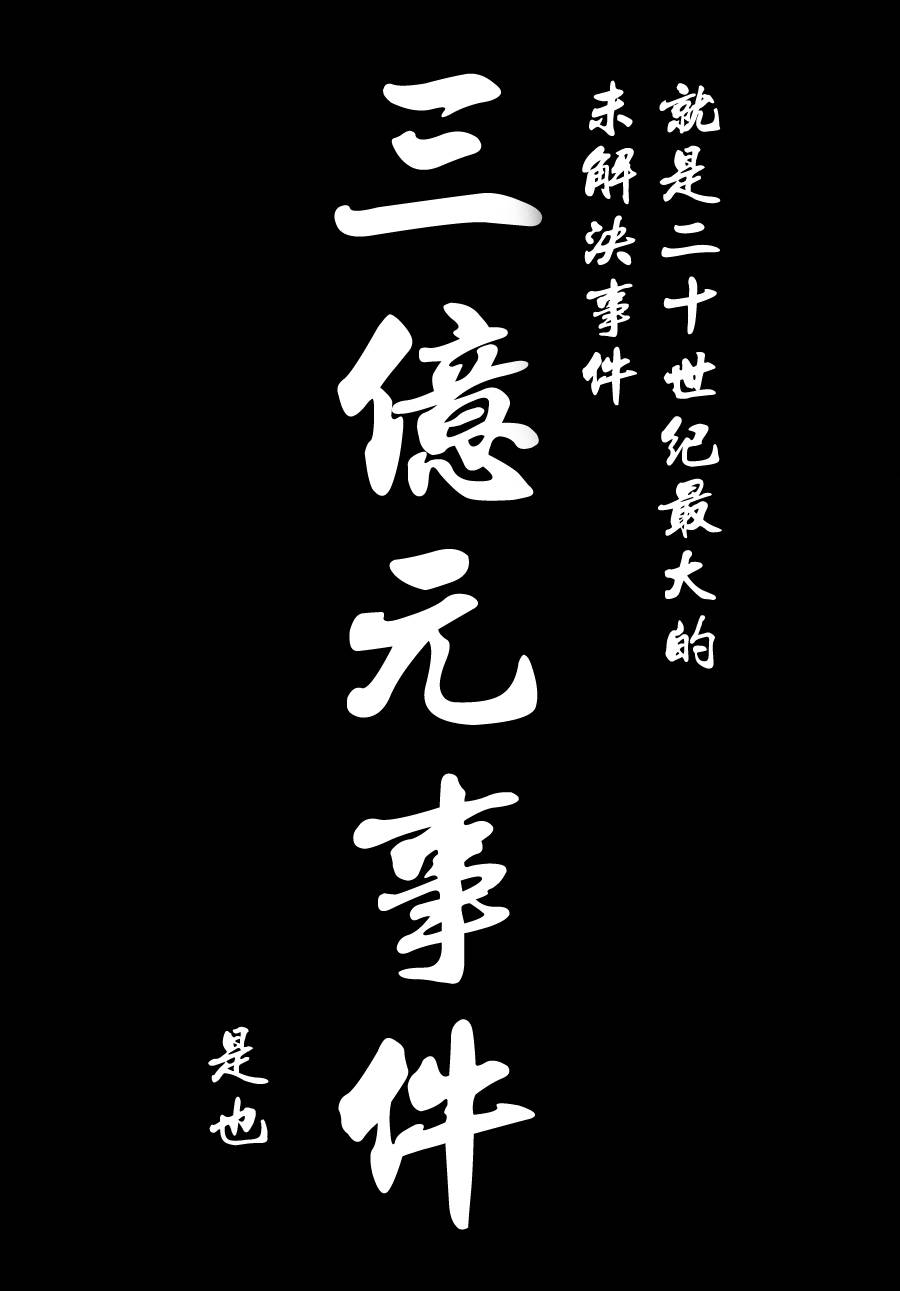 就是二十世纪最大的
未解決事件
三億元事件
是也